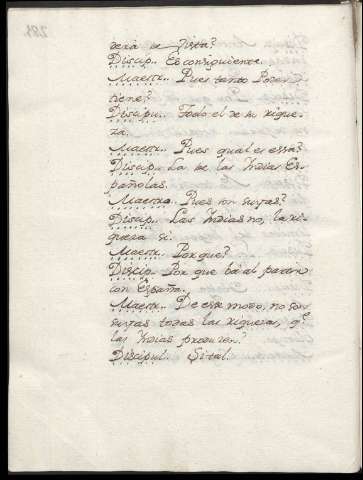 derá de vista?
Discip.. Es consiguiente.
Maestr.. Pues tanto Poder
tiene?
Discipu.. Todo el de su rique-
za.
Maestr.. Pues qual es essa?
Discip.. La de las Yndias Es-
pañolas.
Maestro. Pues son suyas?
Discip.. Las Yndias no, la ri-
queza si.
Maestr.. Por que?
Discip.. Por que bá al parar
con España.
Maestr.. De esse modo, no son
suyas todas las riquezas, q.e
las Yndias producen?
Discipul. Si tal.